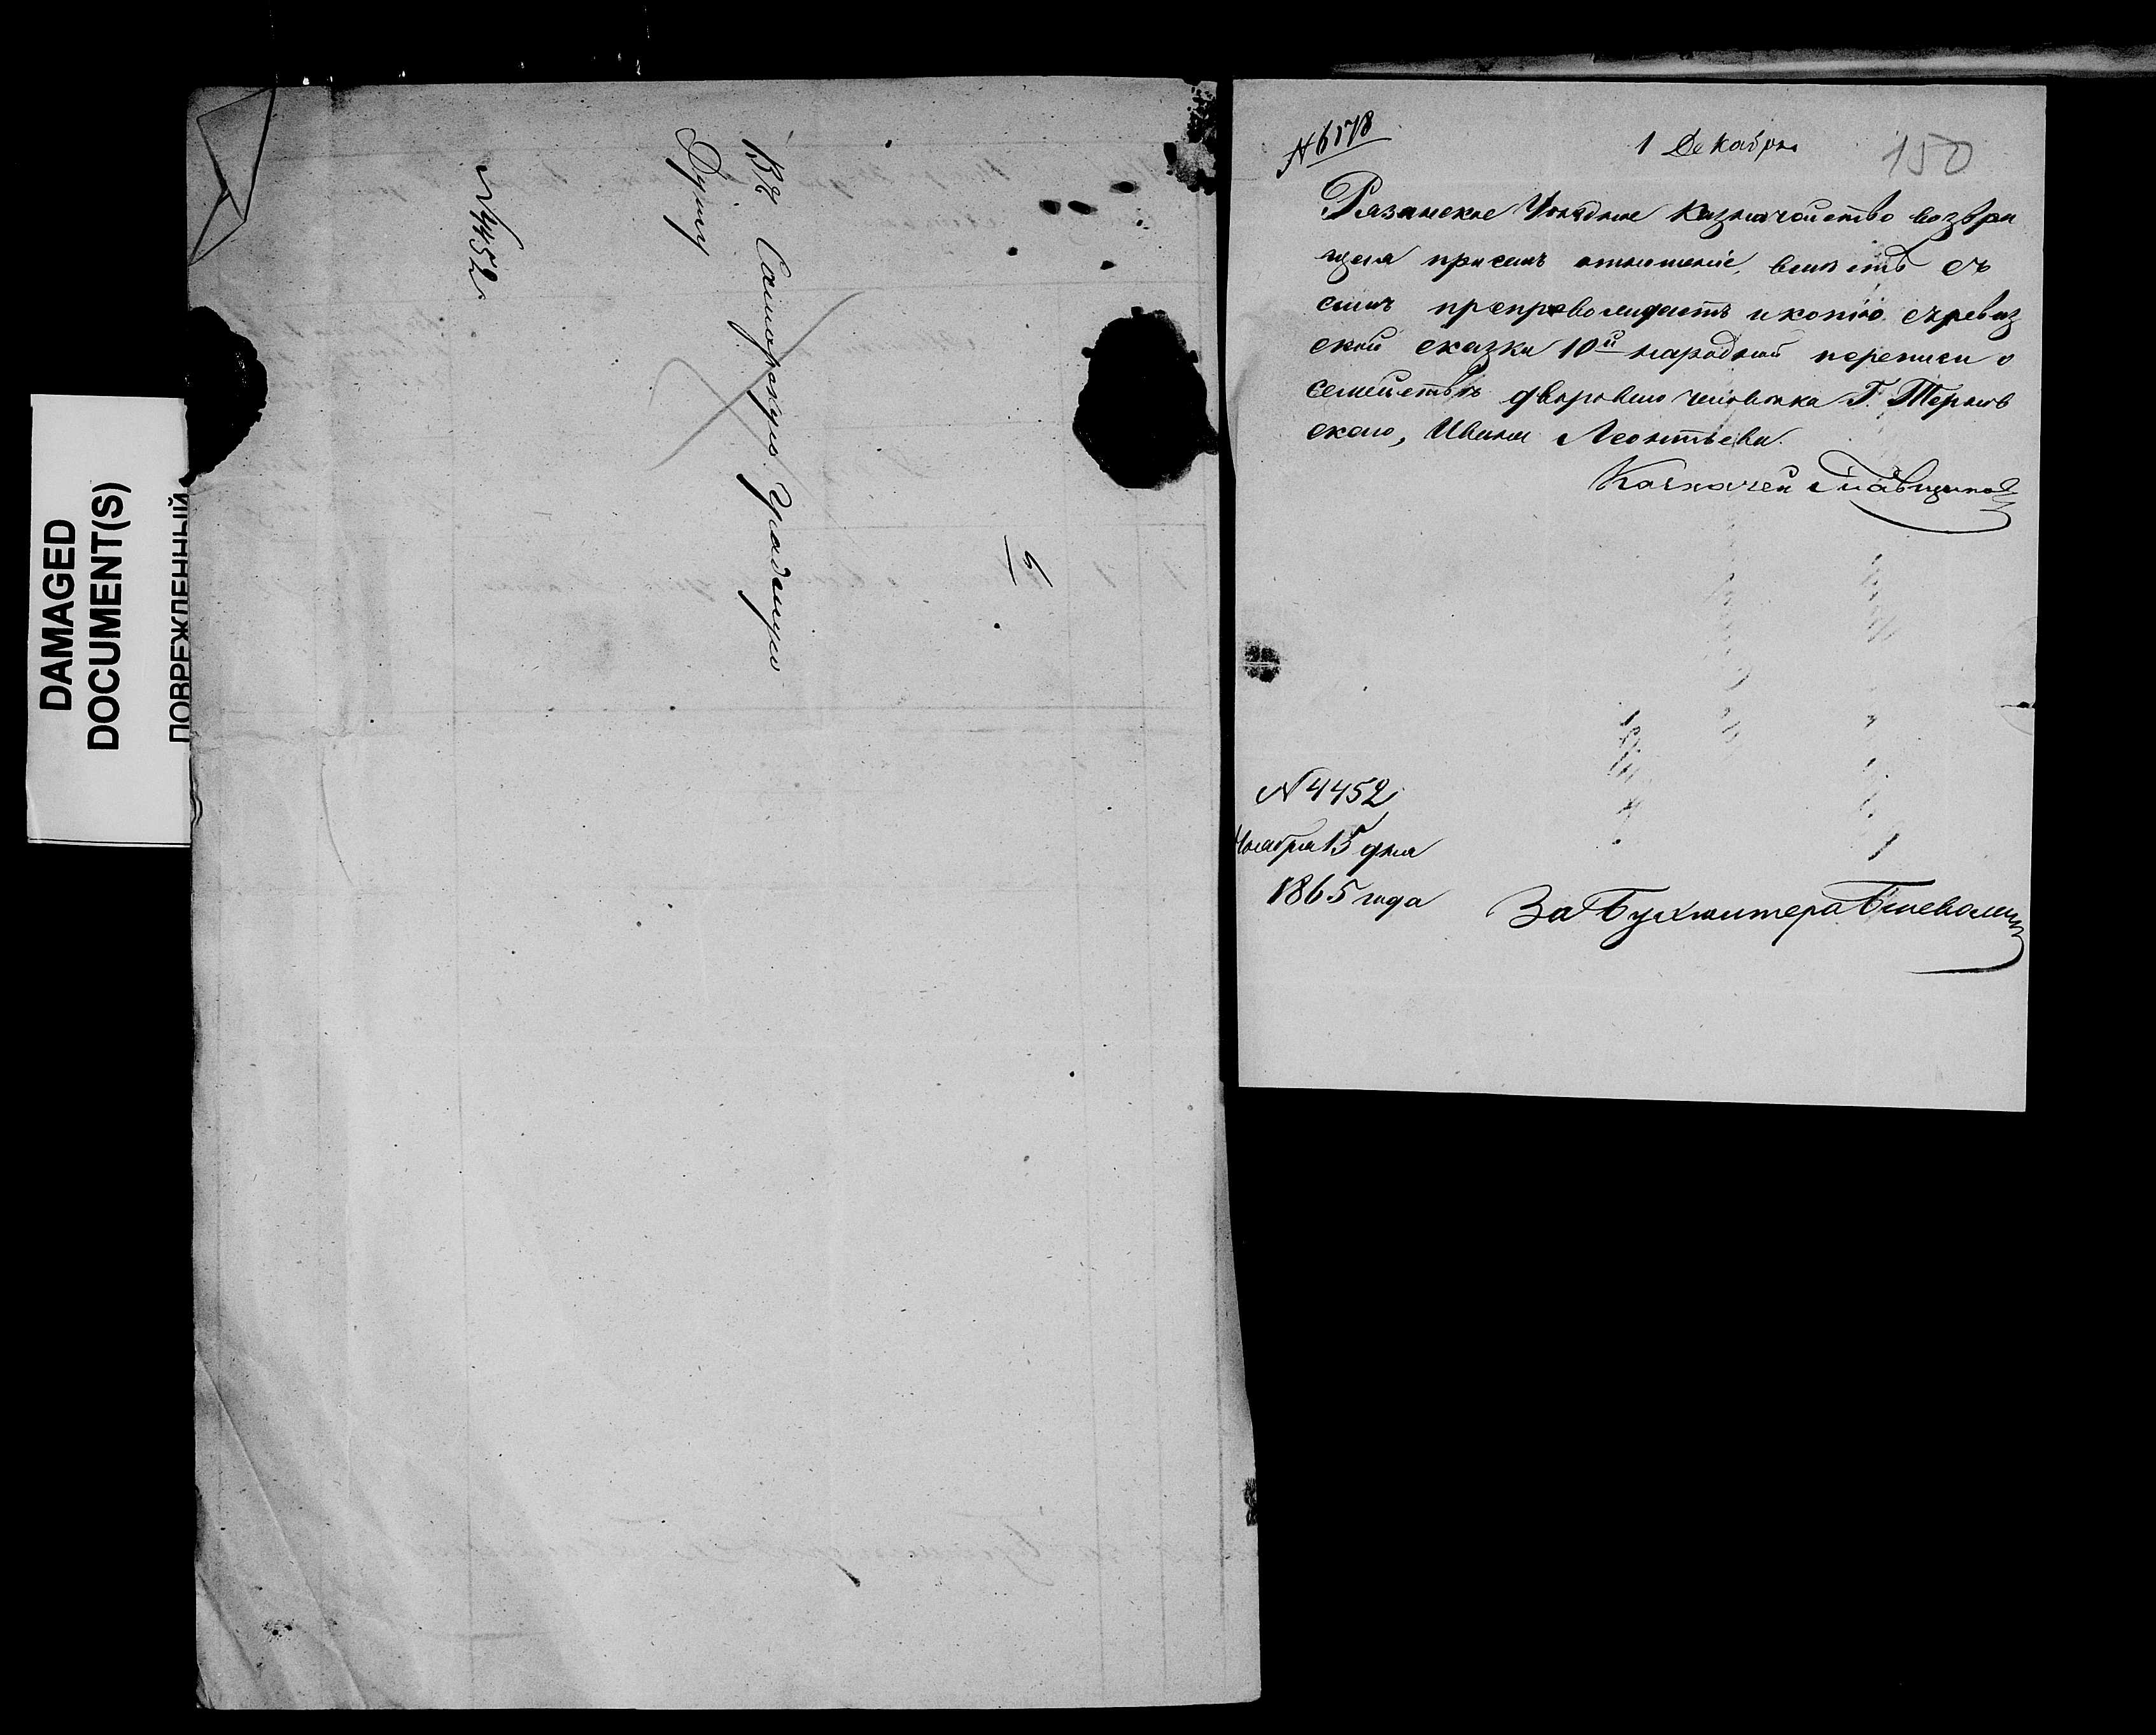 DAMAGED
DOCUMENT(S)
ПОВРЕЖДЕННЫЙ
Въ Самарскую Градскую
Думу
№4452
№6178
1 Декабря
150
Рязанское Уѣздное Казначейство возвра
щая при семъ отношеніе, вмѣстѣ съ
симъ препровождаетъ и копію съ ревиз
ской сказки 10й народной переписи о
семействѣ двороваго человѣка Г. Тернов
скаго, Ивана Леонтьева.
Казначей
№4452
Ноября 15 дня
1865 года
За Бухгалтера